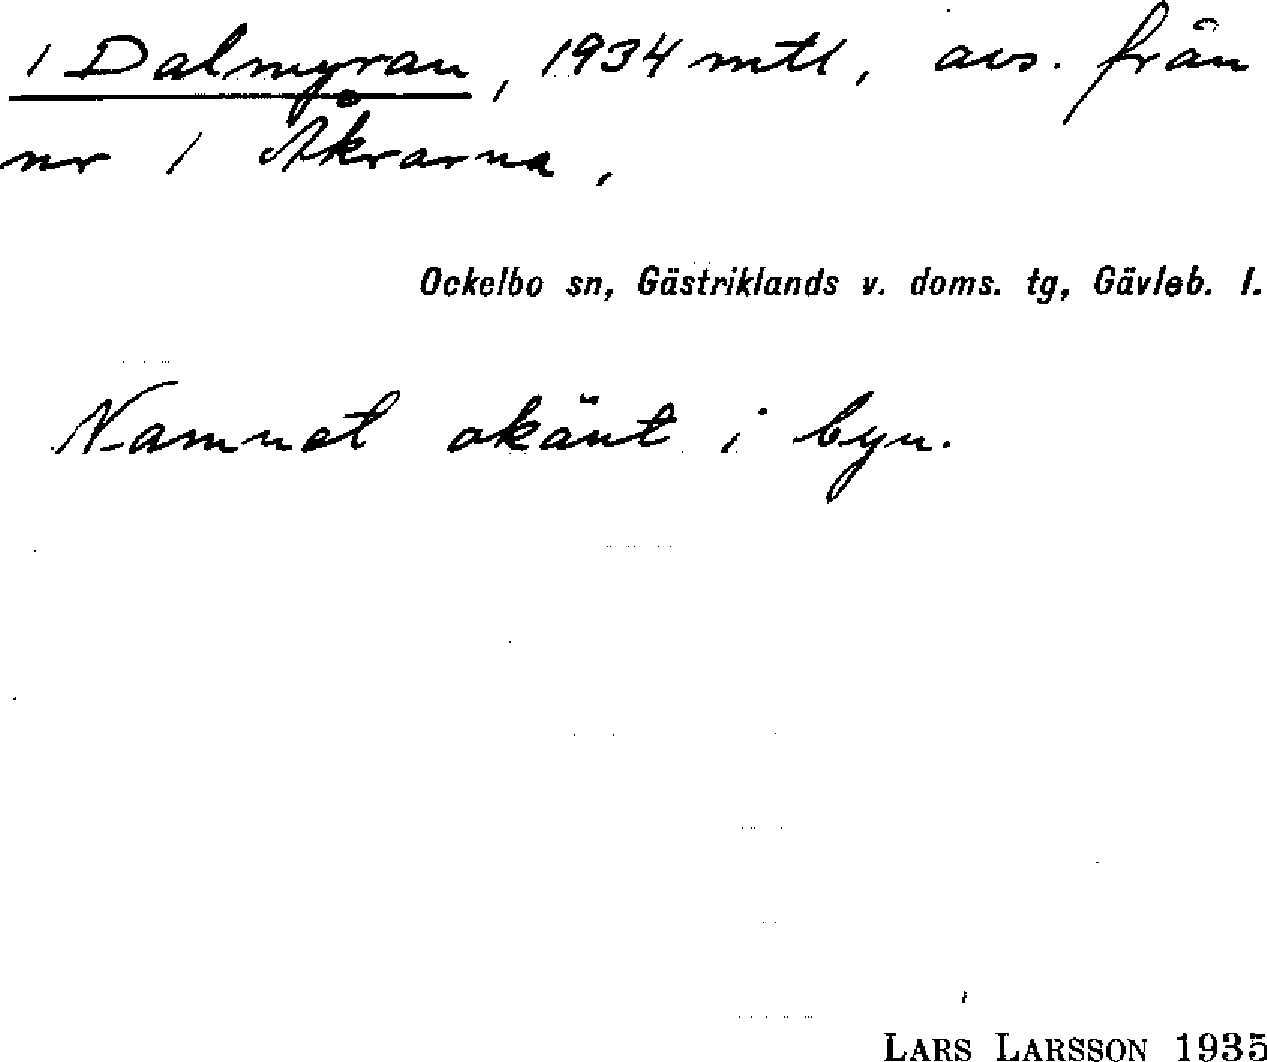 1 Dalmyran, 1934 mtl, avs. från
nr 1 Åkrarna,
Ockelbo sn, Gästriklands v. doms. tg, Gävleb. l.
Namnet okänt i byn.
LARS LARSSON 1935